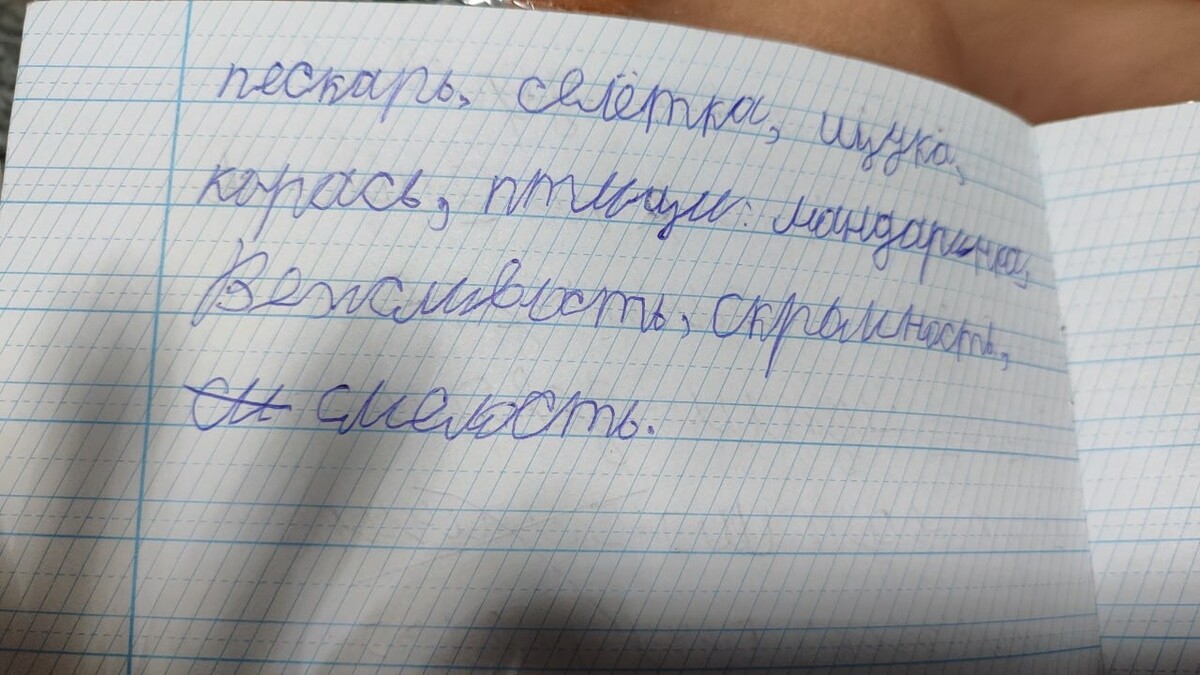 пескарь, селётка, щука,
карась, птицы: мандаринка,
Вежливость, скромность,
см смелость.